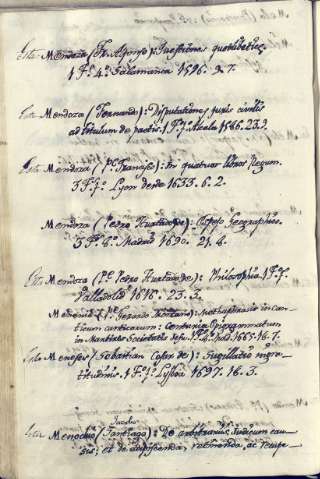 Esta Mendoza (Fr. Alfonso): Questiones quodlibeticę.
1 Tº 4º Salamanca 1596. 9. 7.
Esta Mendoza (Fernando): Disputationes juris civilis
ad titulum de pactis. 1 Tº fº Alcala 1586. 23. 9.
Esta Mendoza (Pe. Francisco): In quatuor libros Regum.
3 Tº fº Lyon desde 1633. 6. 2.
Mendoza (Pedro Hurtado de): Geographico.
3 Tº 4º Madrid 1690. 21. 4.
Esta Mendoza (Pe. Pedro Hurtado de): Philosophia. 1 Tº fº
Valladolid 1615. 23. 3.
in can-
ticum canticorum: Centuria Epigrammatum
1665. 16. 7.
Esta Meneses (Sebastian Cesar de): Sugillatio ingra-
titudinis. 1 Tº fº Lisboa 1697. 16. 3.
Jacobo
Esta Menochio (Santiago): De arbitrariis Judicum cau-
sis: et de adipiscenda, retinenda, ac recupe-